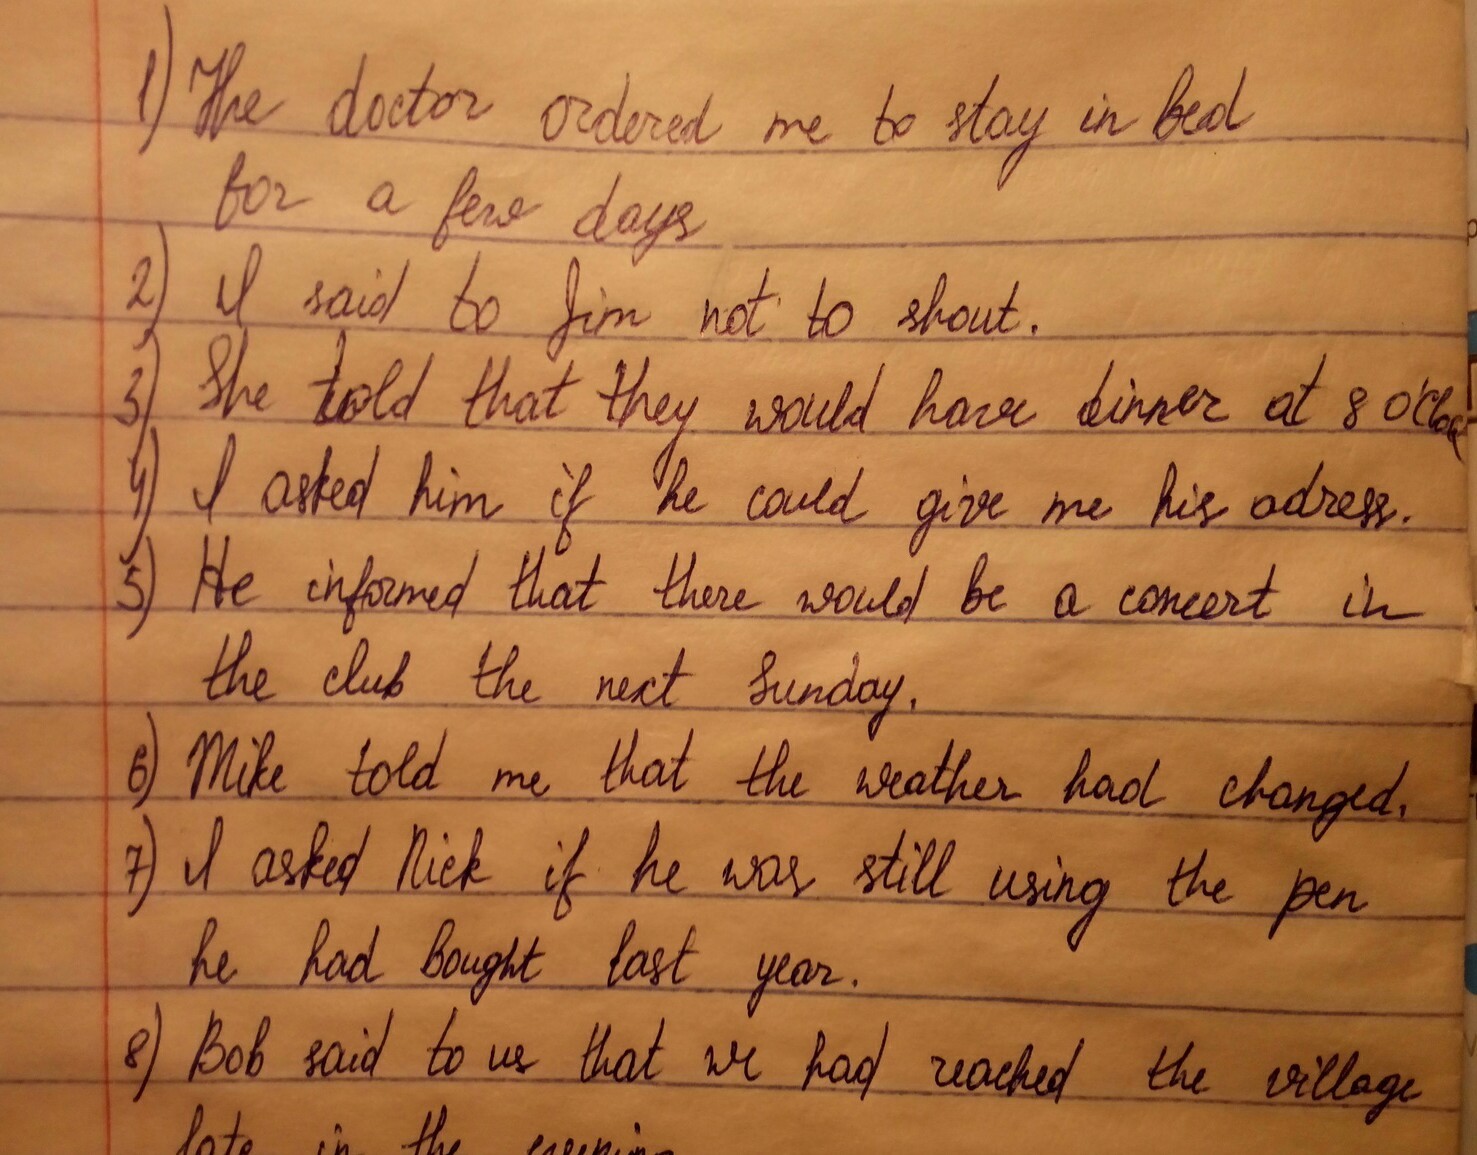 1) The doctor ordered me to stay in bed
for a few days
2) I said to Jim not to shout.
3) She told that they would have dinner at 8 o'cloc
4) I asked him if he could give me his adress.
5) He informed that there would be a concert in
the club the next Sunday.
6) Mike told me that the weather had changed.
7) I asked Nick if he was still using the pen
he had bought last year.
8) Bob said to us that we had reached the village
late in the evening